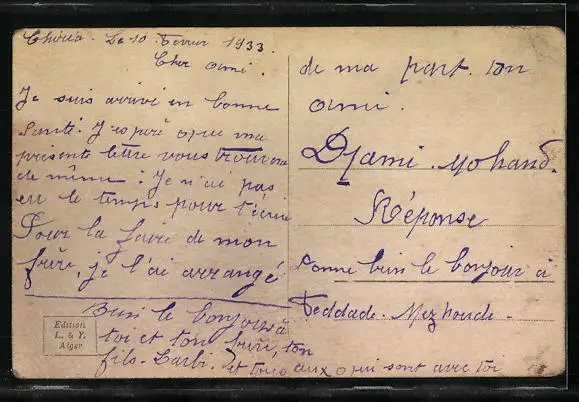 Le 10 Fevrier 1933.
Cher ami.
Je suis arrivé en bonne
santé. J'espère que ma
présente lettre vous trouvera
de même : Je n'ai pas
eu le temps pour t'écrire
Pour la faire de mon
frère, je l'ai arrangé
Bien le bonjour à
toi et ton frère, ton
fils. Larbi. et tous aux qui sont avec toi
Edition
L. & Y.
Alger
de ma part. ton
ami.
Djami. Mohand.
Réponse
Donne bien le bonjour à
Feddade. Mezhoude.